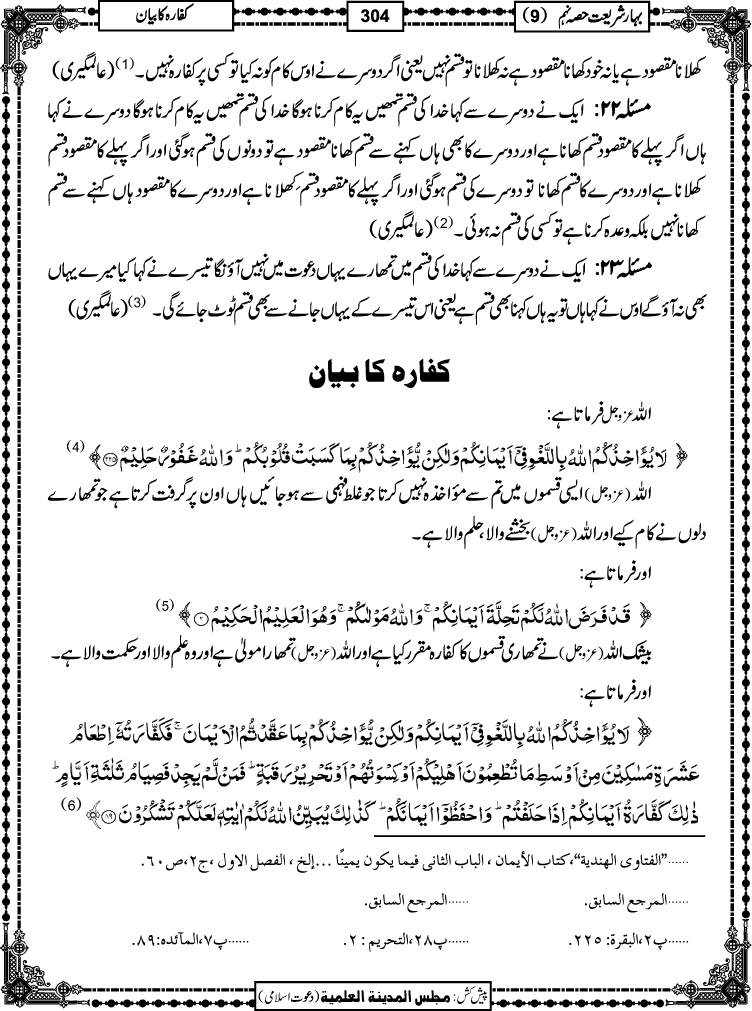 بہار شریعت حصہ نہم (9)
304
کفارہ کا بیان
کھلانا مقصود ہے یا نہ خود کھانا مقصود ہے نہ کھلانا تو قسم نہیں یعنی اگر دوسرے نے اوس کام کو نہ کیا تو کسی پر کفارہ نہیں۔(1) (عالمگیری)
مسئلہ ۲۲: ایک نے دوسرے سے کہا خدا کی قسم تمھیں یہ کام کرنا ہوگا خدا کی قسم تمھیں یہ کام کرنا ہوگا دوسرے نے کہا
ہاں اگر پہلے کا مقصود قسم کھانا ہے اور دوسرے کا بھی ہاں کہنے سے قسم کھانا مقصود ہے تو دونوں کی قسم ہوگئی اور اگر پہلے کا مقصود قسم
کھلانا ہے اور دوسرے کا قسم کھانا تو دوسرے کی قسم ہوگئی اور اگر پہلے کا مقصود قسم کھلانا ہے اور دوسرے کا مقصود ہاں کہنے سے قسم
کھانا نہیں بلکہ وعدہ کرنا ہے تو کسی کی قسم نہ ہوئی۔(2) (عالمگیری)
مسئلہ ۲۳: ایک نے دوسرے سے کہا خدا کی قسم میں تمھارے یہاں دعوت میں نہیں آؤنگا تیسرے نے کہا کیا میرے یہاں
بھی نہ آؤگے اوس نے کہا ہاں تو یہ ہاں کہنا بھی قسم ہے یعنی اس تیسرے کے یہاں جانے سے بھی قسم ٹوٹ جائے گی۔ (3) (عالمگیری)
کفارہ کا بیان
اللہ عزوجل فرماتا ہے:
﴿ لَا یُؤَاخِذُكُمُ اللّٰهُ بِاللَّغْوِ فِیْۤ اَیْمَانِكُمْ وَ لٰكِنْ یُّؤَاخِذُكُمْ بِمَا كَسَبَتْ قُلُوْبُكُمْ ؕ وَ اللّٰهُ غَفُوْرٌ حَلِیْمٌ ﴿۲۲۵﴾ ﴾ (4)
اللہ (عزوجل) ایسی قسموں میں تم سے مؤاخذہ نہیں کرتا جو غلط فہمی سے ہوجائیں ہاں اون پر گرفت کرتا ہے جو تمھارے
دلوں نے کام کیے اور اللہ (عزوجل) بخشنے والا، حلم والا ہے۔
اور فرماتا ہے:
﴿ قَدْ فَرَضَ اللّٰهُ لَكُمْ تَحِلَّةَ اَیْمَانِكُمْ ۚ وَ اللّٰهُ مَوْلٰىكُمْ ۚ وَ هُوَ الْعَلِیْمُ الْحَكِیْمُ ﴿۲﴾ ﴾ (5)
بیشک اللہ (عزوجل) نے تمھاری قسموں کا کفارہ مقرر کیا ہے اور اللہ (عزوجل) تمھارا مولیٰ ہے اور وہ علم والا اور حکمت والا ہے۔
اور فرماتا ہے:
﴿ لَا یُؤَاخِذُكُمُ اللّٰهُ بِاللَّغْوِ فِیْۤ اَیْمَانِكُمْ وَ لٰكِنْ یُّؤَاخِذُكُمْ بِمَا عَقَّدْتُّمُ الْاَیْمَانَ ۚ فَكَفَّارَتُهٗۤ اِطْعَامُ
عَشَرَةِ مَسٰكِیْنَ مِنْ اَوْسَطِ مَا تُطْعِمُوْنَ اَهْلِیْكُمْ اَوْ كِسْوَتُهُمْ اَوْ تَحْرِیْرُ رَقَبَةٍ ؕ فَمَنْ لَّمْ یَجِدْ فَصِیَامُ ثَلٰثَةِ اَیَّامٍ ؕ
ذٰلِكَ كَفَّارَةُ اَیْمَانِكُمْ اِذَا حَلَفْتُمْ ؕ وَ احْفَظُوْۤا اَیْمَانَكُمْ ؕ كَذٰلِكَ یُبَیِّنُ اللّٰهُ لَكُمْ اٰیٰتِهٖ لَعَلَّكُمْ تَشْكُرُوْنَ ﴿۸۹﴾ ﴾ (6)
......"الفتاوی الھندیة"، کتاب الأیمان ، الباب الثانی فیما یکون یمینًا ...إلخ ، الفصل الاول ،ج۲،ص۶۰.
......المرجع السابق.
......المرجع السابق.
......پ۲،البقرة: ۲۲۵.
......پ۲۸،التحریم : ۲.
......پ۷،المآئدہ:۸۹.
پیش کش: مجلس المدینة العلمیة (دعوت اسلامی)